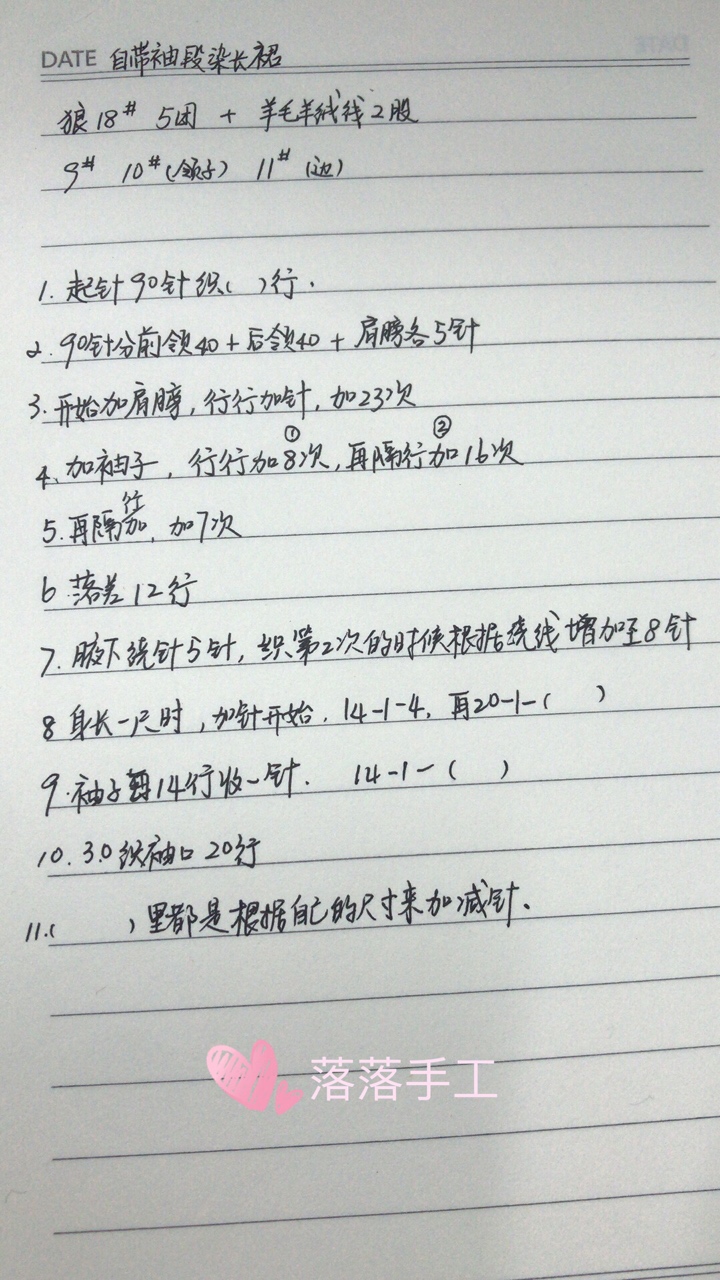 DATE 自带袖段染长裙
狼18# 5团 + 羊毛羊绒线2股
9# 10#(领子) 11#(边)
1. 起针90针织( )行.
2. 90针分前领40+后领40+肩膀各5针
3. 开始加肩膀,行行加针,加23次
4. 加袖子,行行加①8次,再隔行加②16次
5. 再隔行加,加7次
6 落差12行
7. 腋下绕针5针,织第2次的时候根据绕线增加至8针
8 身长一尺时,加针开始.14-1-4,再20-1-( )
9.袖子14行收一针. 14-1-( )
10.30织袖口20行
11.( )里都是根据自己的尺寸来加减针.
落落手工